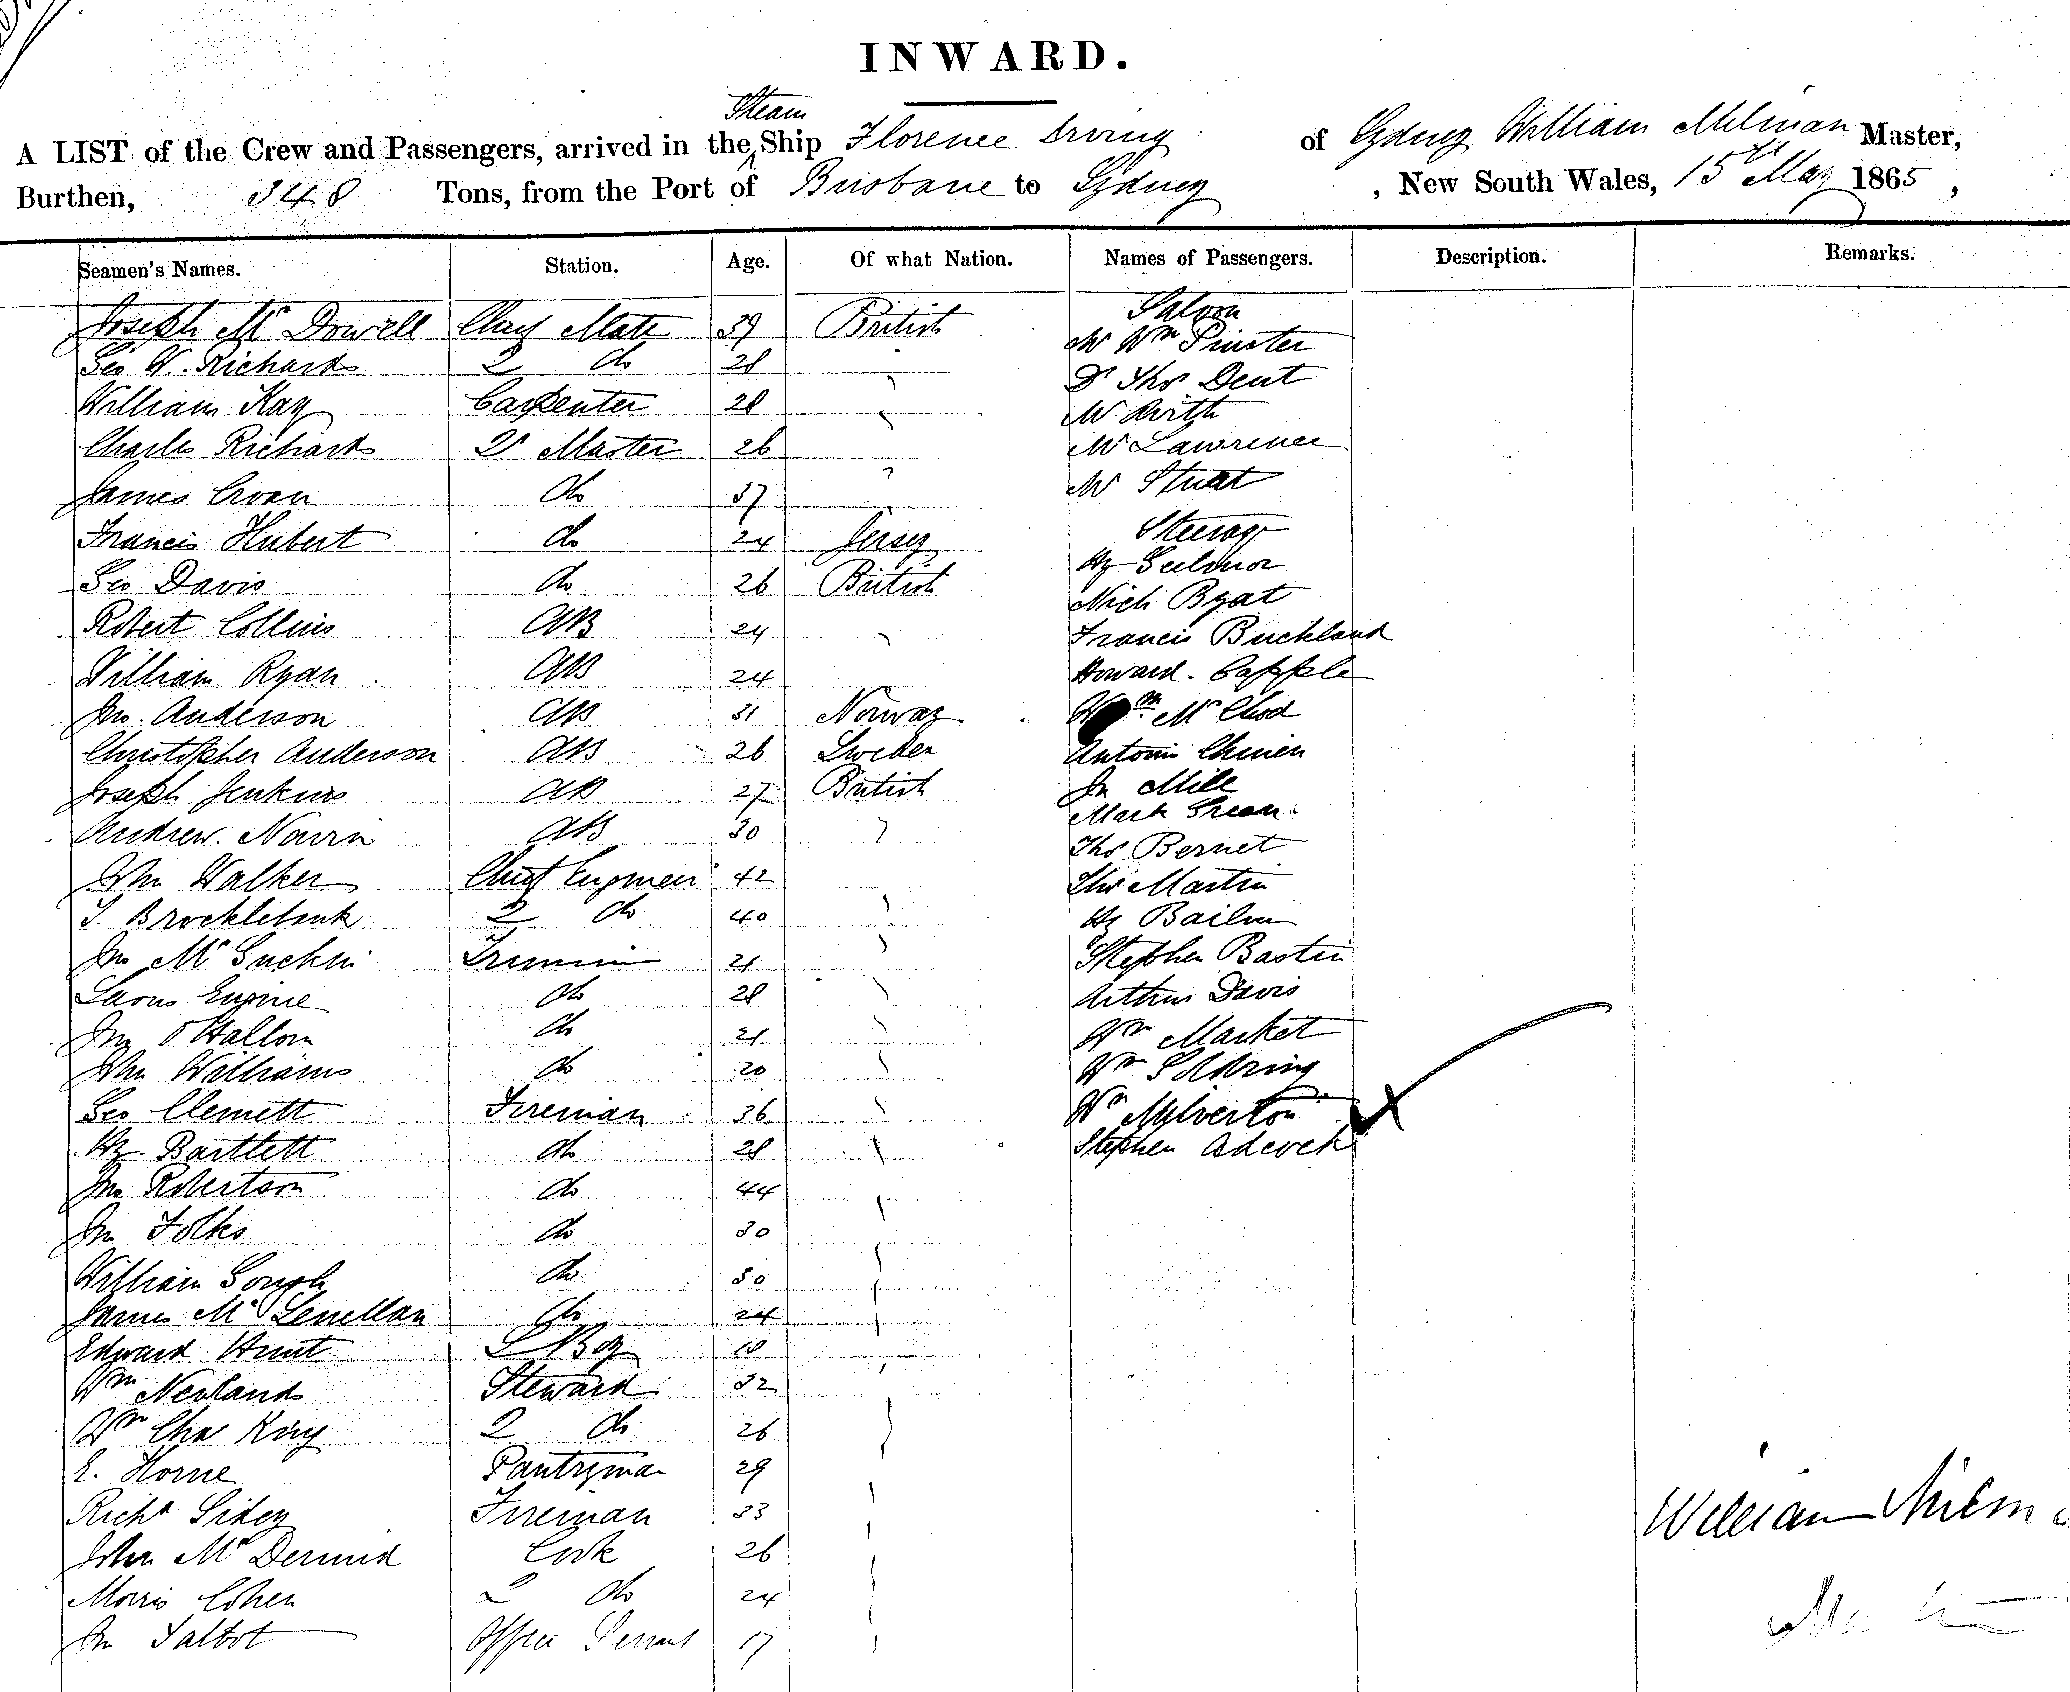 INWARD.
Steam
A LIST of the Crew and Passengers, arrived in the Ship Florence Irving of Sydney William Milman Master,
Burthen, 348 Tons, from the Port of Brisbane to Sydney, New South Wales, 15th May 1865,
Seamen's Names. Station. Age. Of what Nation. Names of Passengers. Description. Remarks.
Joseph Mc Dowell Chief Mate 39 British Saloon
Mr Wm
Geo W. Richards 2 do 28
Dr Thos Dent
William Kay Carpenter 28
Mr
Charles Richards Qr Master 26 Mr Lawrence
James do 37 Mr
Francis Hubert do 24 Jersey Steerage
Hy
Geo Davis do 26 British
Nich Byat
Robert Collins AB 24
Francis Buckland
William Ryan AB 24 Howard
Jno Anderson AB 31 Norway Wm
Christopher Anderson AB 26 Sweden Antonio
Joseph Jenkins AB 27 British Jn Mill
Mark Green
Andrew AB 30
Thos Bernet
John Walker Chief Engineer 42 Thos Martin
T. Brocklebank 2 do 40 Hy
Jno Mc 21 Stephen Bastin
do 28 Arthur Davis
Jno O'Hallon do 21 Wm Market
John Williams do 20 Wm
Geo Clemett Fireman 36 Wm Milverton
Hy Bartlett do 28 Stephen Adcock
Jno Robertson do 44
Jn Folks do 30
William Gough do 30
James Mc Lenellan do 24
Edward Hunt Boy 18
Wm Newland Steward 32
Wm Chas King 2 do 26
E. Horne Pantryman 29
Richd Sidey Fireman 33
William Milm
John Mc Dermid Cook 26
Morris Cohen 2 do 24
Jn Talbot Office Servant 17